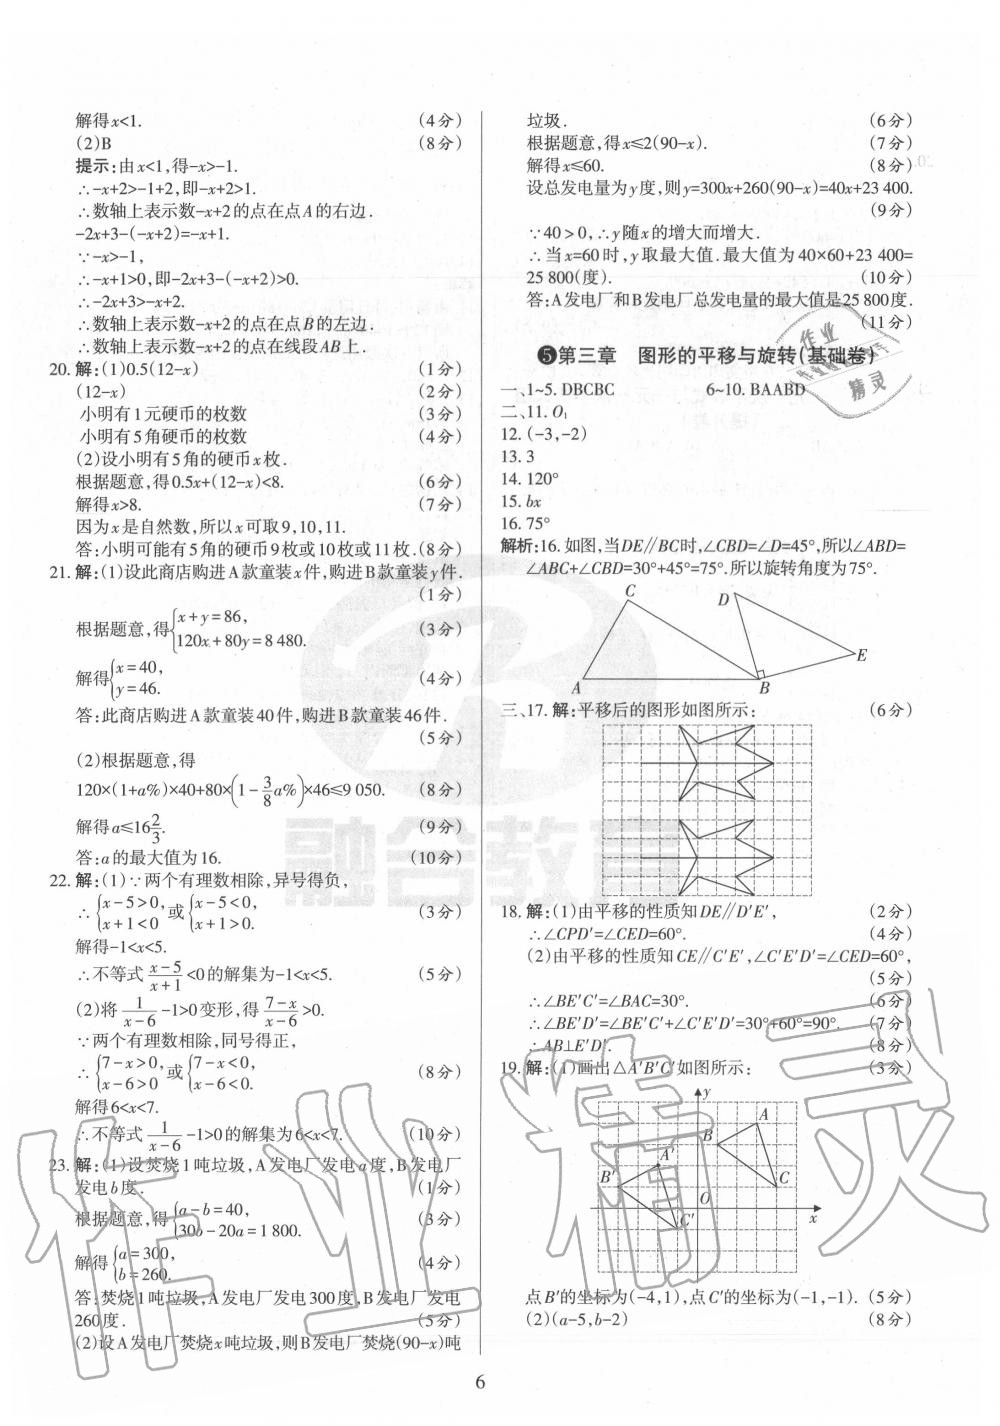 解得x<1. (4分)
(2)B (8分)
提示:由x<1,得-x>-1.
∴-x+2>-1+2,即-x+2>1.
∴数轴上表示数-x+2的点在点A的右边.
-2x+3-(-x+2)=-x+1.
∵-x>-1,
∴-x+1>0,即-2x+3-(-x+2)>0.
∴-2x+3>-x+2.
∴数轴上表示数-x+2的点在点B的左边.
∴数轴上表示数-x+2的点在线段AB上.
20.解:(1)0.5(12-x) (1分)
(12-x) (2分)
小明有1元硬币的枚数 (3分)
小明有5角硬币的枚数 (4分)
(2)设小明有5角的硬币x枚.
根据题意,得0.5x+(12-x)<8. (6分)
解得x>8. (7分)
因为x是自然数,所以x可取9,10,11.
答:小明可能有5角的硬币9枚或10枚或11枚.(8分)
21.解:(1)设此商店购进A款童装x件,购进B款童装y件.
(1分)
根据题意,得{x+y=86, 120x+80y=8 480. (3分)
解得{x=40, y=46. (4分)
答:此商店购进A款童装40件,购进B款童装46件.
(5分)
(2)根据题意,得
120×(1+a%)×40+80×(1-3/8a%)×46≤9 050. (8分)
解得a≤16 2/3. (9分)
答:a的最大值为16. (10分)
22.解:(1)∵两个有理数相除,异号得负,
∴{x-5>0, x+1<0 或{x-5<0, x+1>0. (3分)
解得-1<x<5.
∴不等式 x-5/x+1 <0的解集为-1<x<5. (5分)
(2)将 1/x-6 -1>0变形,得 7-x/x-6 >0.
∵两个有理数相除,同号得正,
∴{7-x>0, x-6>0 或{7-x<0, x-6<0. (8分)
解得6<x<7.
∴不等式 1/x-6 -1>0的解集为6<x<7. (10分)
23.解:(1)设焚烧1吨垃圾,A发电厂发电a度,B发电厂
发电b度. (1分)
根据题意,得{a-b=40, 30b-20a=1 800. (3分)
解得{a=300, b=260. (4分)
答:焚烧1吨垃圾,A发电厂发电300度,B发电厂发电
260度. (5分)
(2)设A发电厂焚烧x吨垃圾,则B发电厂焚烧(90-x)吨
垃圾. (6分)
根据题意,得x≤2(90-x). (7分)
解得x≤60. (8分)
设总发电量为y度,则y=300x+260(90-x)=40x+23 400.
(9分)
∵40>0,∴y随x的增大而增大.
∴当x=60时,y取最大值.最大值为40×60+23 400=
25 800(度). (10分)
答:A发电厂和B发电厂总发电量的最大值是25 800度.
(11分)
❺第三章 图形的平移与旋转(基础卷)
一、1~5. DBCBC 6~10. BAABD
二、11. O₁
12. (-3,-2)
13. 3
14. 120°
15. bx
16. 75°
解析:16.如图,当DE∥BC时,∠CBD=∠D=45°,所以∠ABD=
∠ABC+∠CBD=30°+45°=75°.所以旋转角度为75°.
C D
E
A B
三、17.解:平移后的图形如图所示: (6分)
18.解:(1)由平移的性质知DE∥D′E′, (2分)
∴∠CPD′=∠CED=60°. (4分)
(2)由平移的性质知CE∥C′E′,∠C′E′D′=∠CED=60°,
(5分)
∴∠BE′C′=∠BAC=30°. (6分)
∴∠BE′D′=∠BE′C′+∠C′E′D′=30°+60°=90°. (7分)
∴AB⊥E′D′. (8分)
19.解:(1)画出△A′B′C′如图所示: (3分)
y
A
B
A′
B′ C
O
C′ x
点B′的坐标为(-4,1),点C′的坐标为(-1,-1). (5分)
(2)(a-5,b-2) (8分)
6
融合教育
作业精灵
作业
精灵